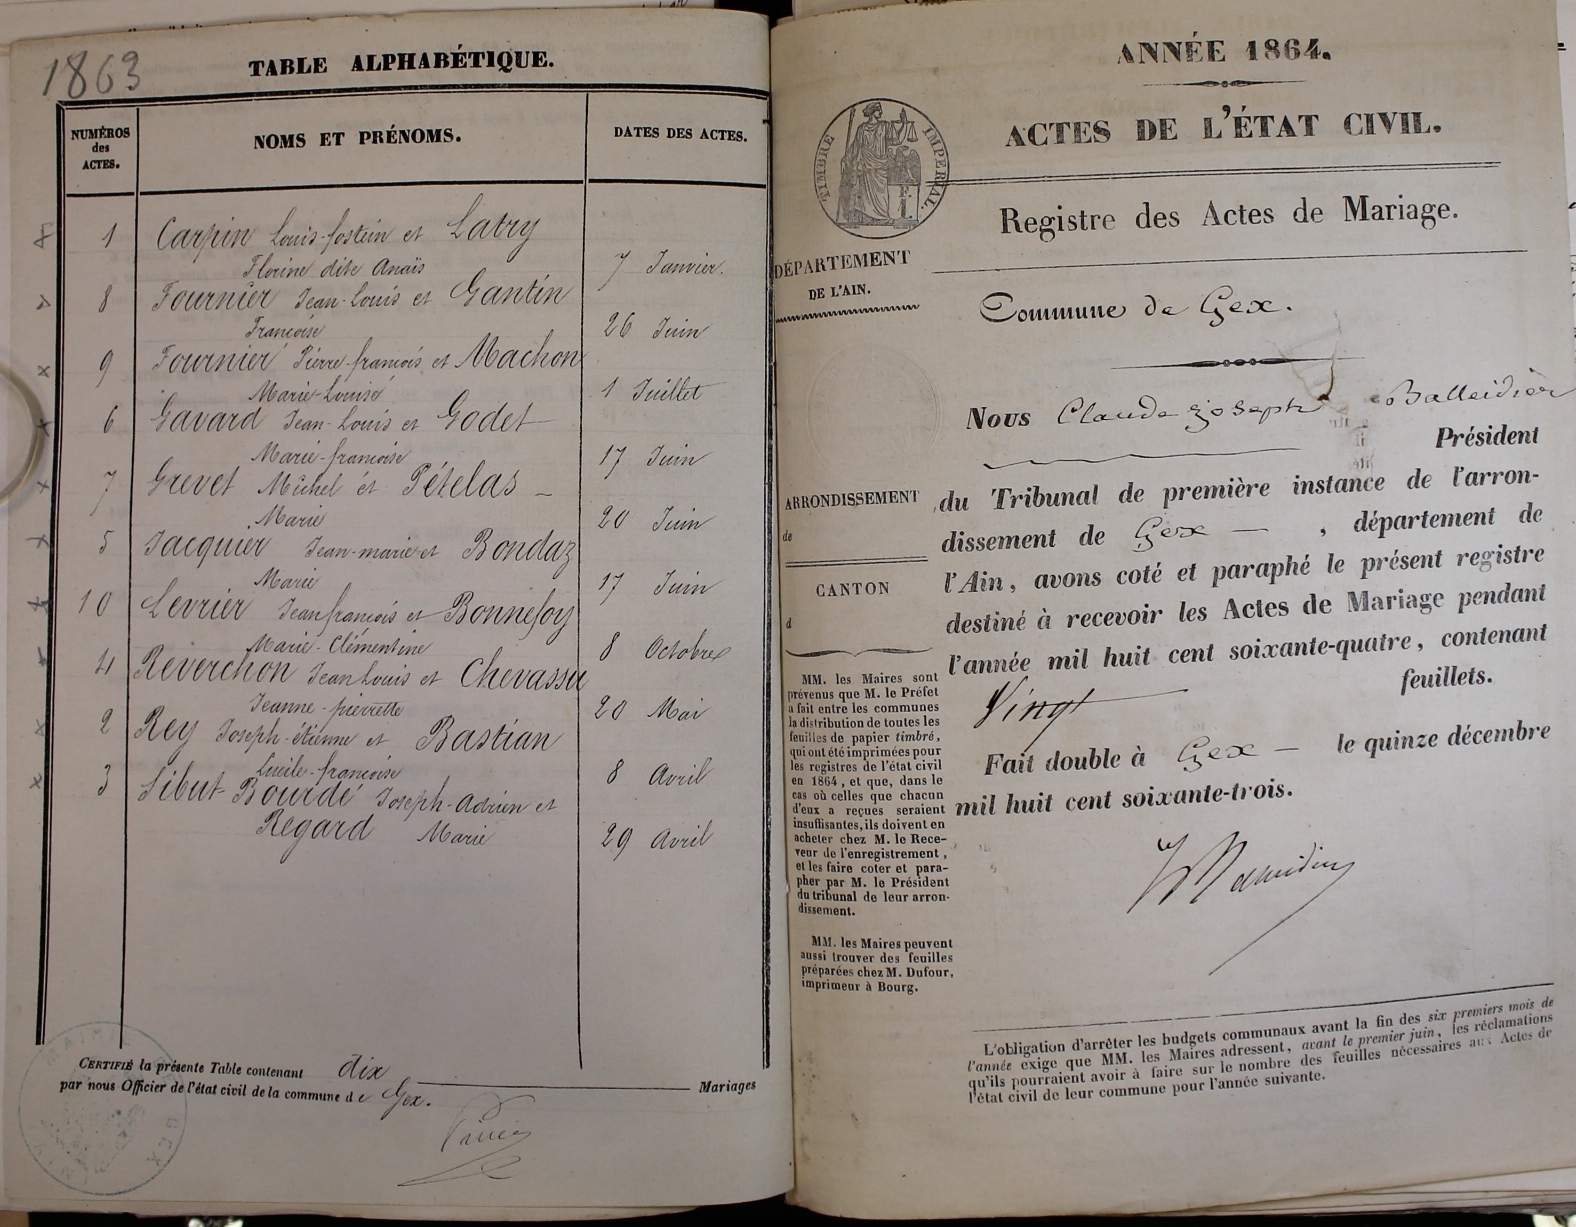 1863
TABLE ALPHABÉTIQUE.
NUMÉROS
des
ACTES.
NOMS ET PRÉNOMS.
DATES DES ACTES.
1 Carpin Louis-fostin et Latry
Florine dite Anaïs 7 Janvier.
8 Fournier Jean-Louis et Gantin
Françoise 26 Juin
9 Fournier Pierre-françois et Machon
Marie-Louise 1 Juillet
6 Gavard Jean-Louis et Godet
Marie-françoise 17 Juin
7 Grevet Michel et Pételas
Marie 20 Juin
5 Jacquier Jean-marie et Bondaz
Marie 17 Juin
10 Levrier Jean françois et Bonnefoy
Marie-Clémentine 8 Octobre
4 Reverchon Jean Louis et Chevassu
Jeanne-pierrette 20 Mai
2 Rey Joseph-étienne et Bastian
Lucile-françoise 8 Avril
3 Sibut-Bourdé Joseph-Adrien et
Regard Marie 29 Avril
CERTIFIÉ la présente Table contenant dix
Mariages
par nous Officier de l'état civil de la commune de Gex.
MAIRIE DE GEX
ANNÉE 1864.
ACTES DE L'ÉTAT CIVIL.
TIMBRE IMPÉRIAL.
Registre des Actes de Mariage.
DÉPARTEMENT
DE L'AIN.
Commune de Gex.
ARRONDISSEMENT
de
CANTON
d
MM. les Maires sont
prévenus que M. le Préfet
a fait entre les communes
la distribution de toutes les
feuilles de papier timbré,
qui ont été imprimées pour
les registres de l'état civil
en 1864, et que, dans le
cas où celles que chacun
d'eux a reçues seraient
insuffisantes, ils doivent en
acheter chez M. le Rece-
veur de l'enregistrement,
et les faire coter et para-
pher par M. le Président
du tribunal de leur arron-
dissement.
MM. les Maires peuvent
aussi trouver des feuilles
préparées chez M. Dufour,
imprimeur à Bourg.
Nous Claude Joseph Balleidier
Président
du Tribunal de première instance de l'arron-
dissement de Gex, département de
l'Ain, avons coté et paraphé le présent registre
destiné à recevoir les Actes de Mariage pendant
l'année mil huit cent soixante-quatre, contenant
Vingt feuillets.
Fait double à Gex le quinze décembre
mil huit cent soixante-trois.
L'obligation d'arrêter les budgets communaux avant la fin des six premiers mois de
l'année exige que MM. les Maires adressent, avant le premier juin, les réclamations
qu'ils pourraient avoir à faire sur le nombre des feuilles nécessaires aux Actes de
l'état civil de leur commune pour l'année suivante.